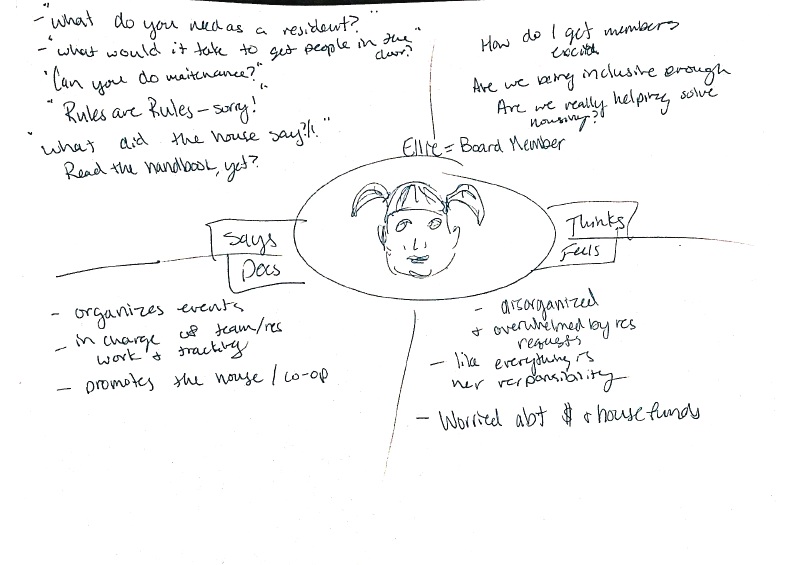 - "What do you need as a resident?"
- "what would it take to get people in the
door?"
"Can you do maitenance?"
"Rules are Rules - sorry!"
"what did the house say?!!"
Read the handbook, yet?
How do I get members
Are we being inclusive enough
Are we really helping solve
housing?
Ellie = Board Member
Says
Does
Thinks
Feels
- organizes events
- in charge of team/res
work & tracking
- promotes the house / co-op
- disorganized
& overwhelmed by res
requests
- like everything is
her responsibility
- Worried abt $ & house funds